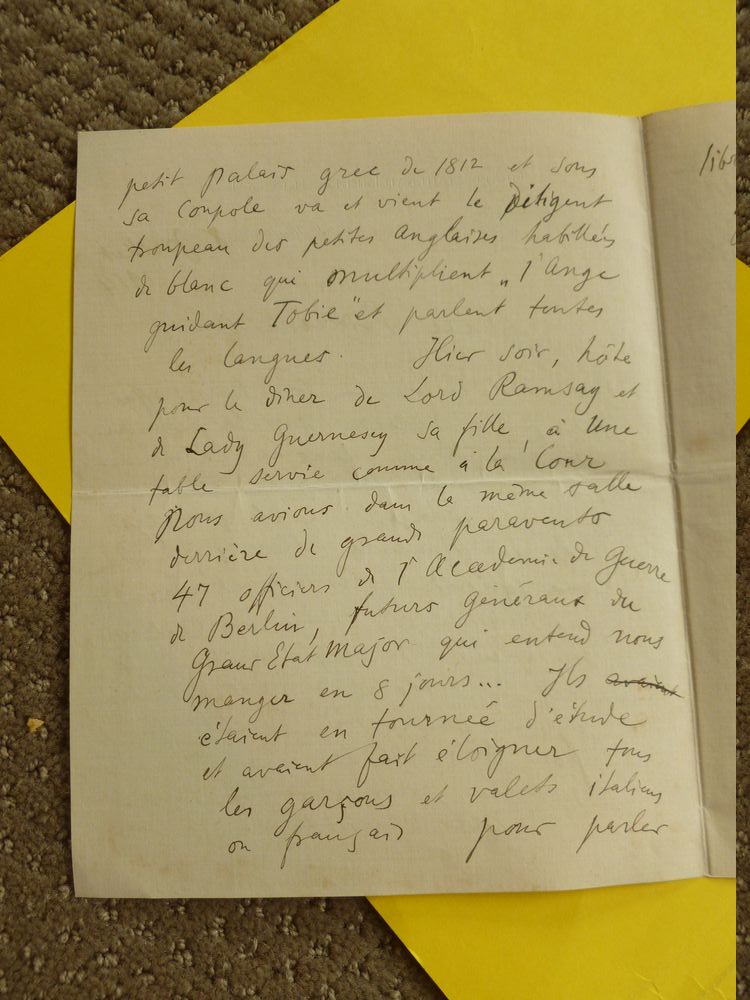 petit palais grec de 1812 et sous
sa Coupole va et vient le diligent
troupeau des petites Anglaises habillées
de blanc qui multiplient „l'Ange
guidant Tobie" et parlent toutes
les langues. Hier soir, hôte
pour le dîner de Lord Ramsay et
de Lady Guernesey sa fille, à une
table servie comme à la Cour
Nous avions dans la même salle
derrière de grands paravents
47 officiers de l'Academie de Guerre
de Berlin, futurs Généraux du
Grand Etat Major qui entend nous
manger en 8 jours... Ils avaient
étaient en tournée d'étude
et avaient fait éloigner tous
les garçons et valets italiens
ou français pour parler